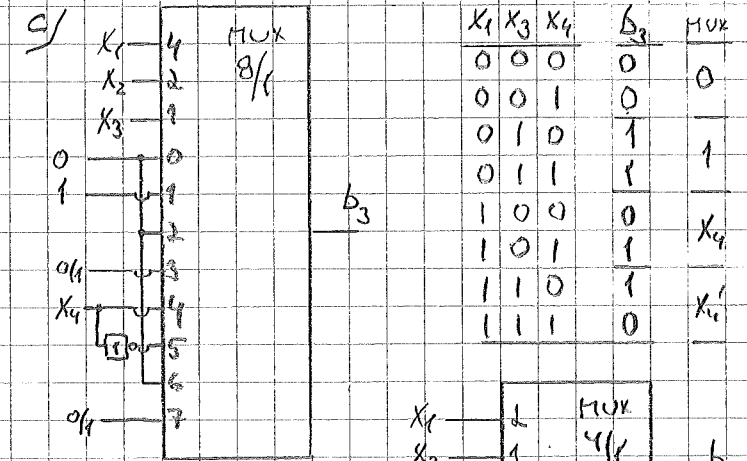 a)
MUX
8/1
X₁ 4
X₂ 2
X₃ 1
0 0
1 1
2
0/1 3
X₄ 4
1 5
6
0/1 7
b₃
X₁ X₃ X₄ b₃ MUX
0 0 0 0
0
0 0 1 0
0 1 0 1
1
0 1 1 1
1 0 0 0
X₄
1 0 1 1
1 1 0 1
X₄'
1 1 1 0
X₁ 2 MUX
X₂ 1 4/1
b